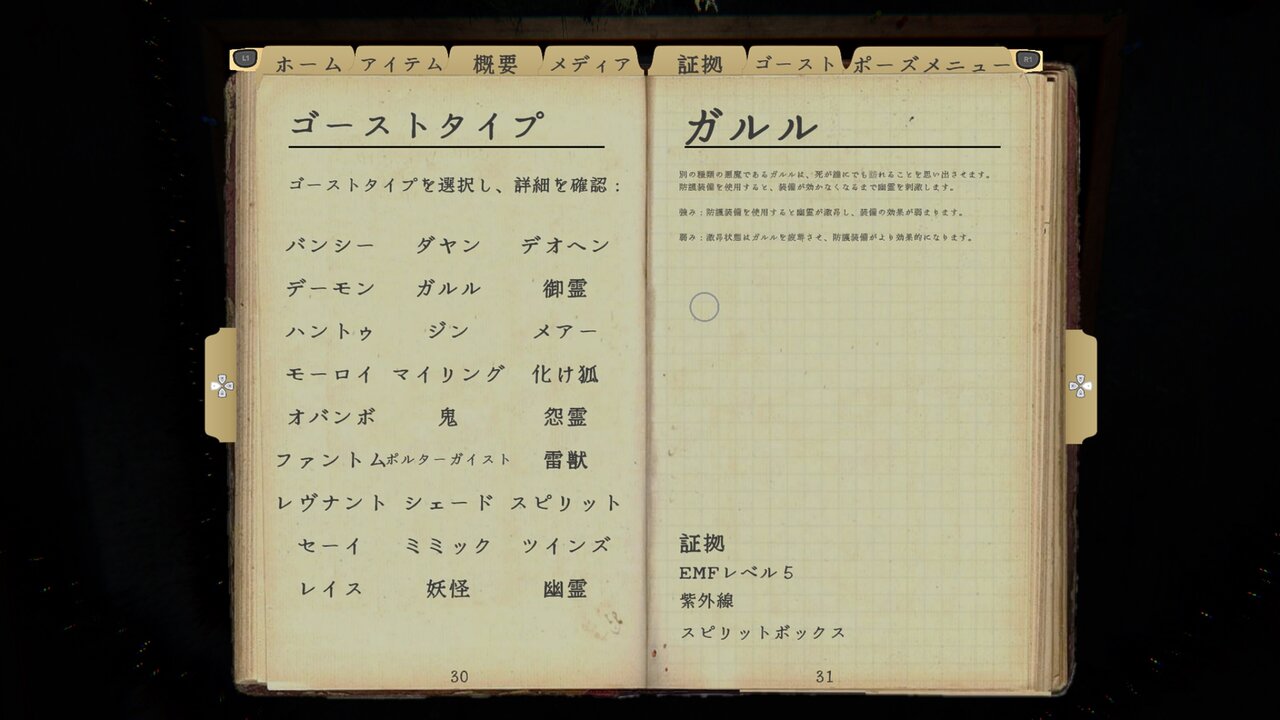 L1 ホーム アイテム 概要 メディア 証拠 ゴースト ポーズメニュー R1
ゴーストタイプ
ゴーストタイプを選択し、詳細を確認：
バンシー ダヤン デオヘン
デーモン ガルル 御霊
ハントゥ ジン メアー
モーロイ マイリング 化け狐
オバンボ 鬼 怨霊
ファントム ポルターガイスト 雷獣
レヴナント シェード スピリット
セーイ ミミック ツインズ
レイス 妖怪 幽霊
30
ガルル
別の種類の悪魔であるガルルは、死が誰にでも訪れることを思い出させます。
防護装備を使用すると、装備が効かなくなるまで幽霊を刺激します。
強み：防護装備を使用すると幽霊が激昂し、装備の効果が弱まります。
弱み：激昂状態はガルルを疲弊させ、防護装備がより効果的になります。
証拠
EMFレベル５
紫外線
スピリットボックス
31